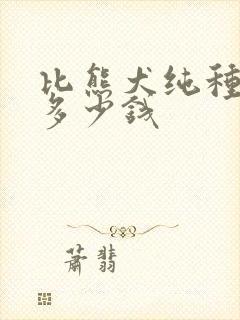 比熊犬纯種
多少錢
蕭翡